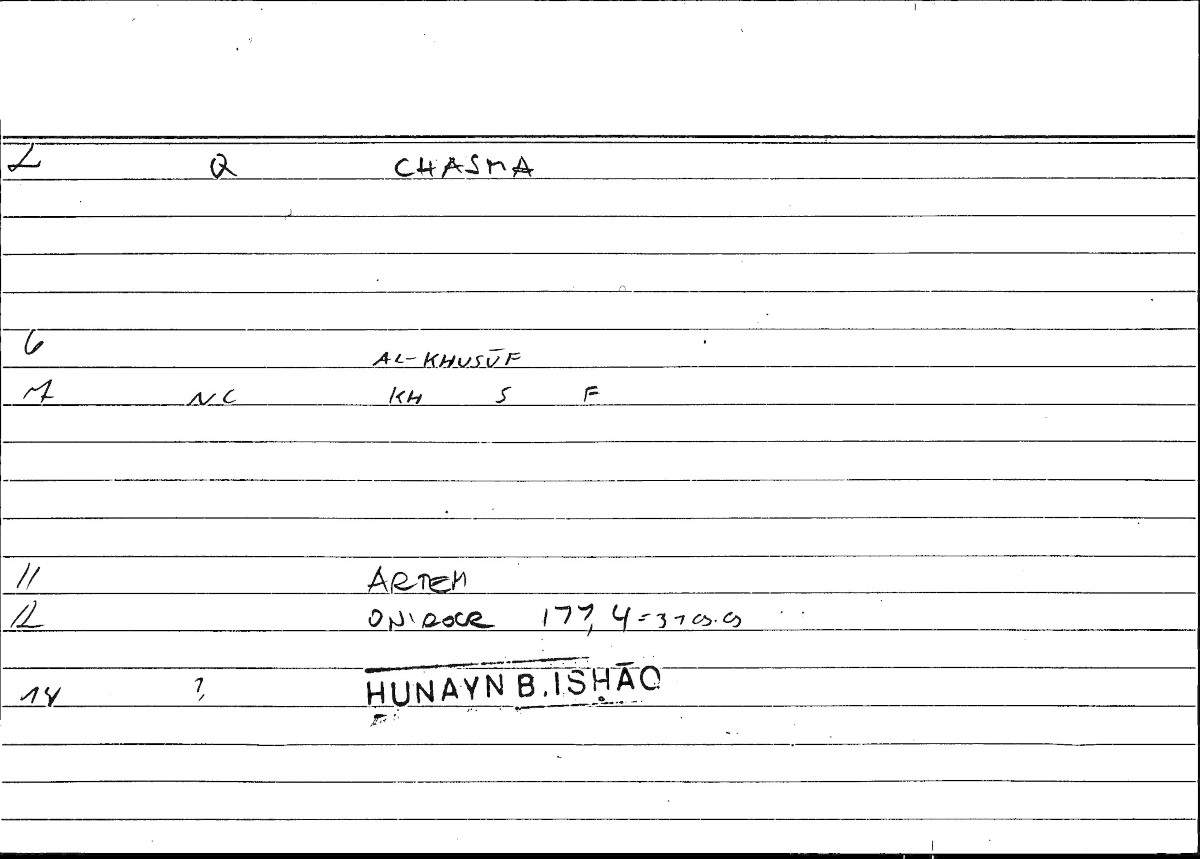 L Q CHASMA
6 AL-KHUSŪF
7 NC KH S F
11 ARTEM
12 ONIROCR 177, 4 =
14 ? HUNAYN B. ISḤĀQ